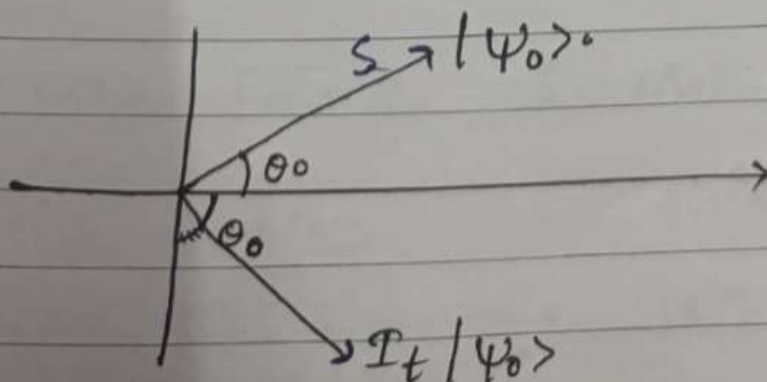 S |ψ₀>.
θ₀
θ₀
I_t |ψ₀>